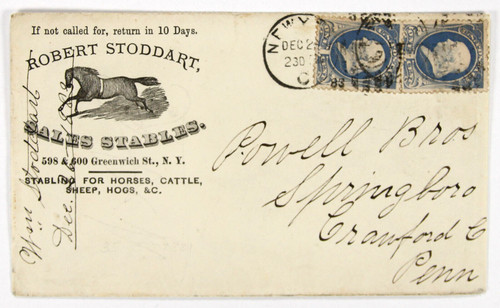 If not called for, return in 10 Days.
ROBERT STODDART,
SALES STABLES.
598 & 600 Greenwich St., N. Y.
STABLING FOR HORSES, CATTLE,
SHEEP, HOGS, &C.
Wm Stoddart
Dec.
NEW
DEC 2
230
83
Powell Bros
Springboro
Crawford C
Penn